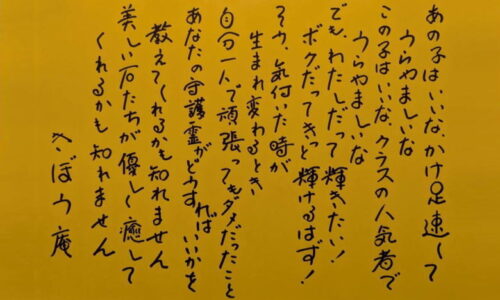 あの子はいいな、かけ足速くて
うらやましいな
この子はいいな、クラスの人気者で
うらやましいな
でも、わたしだって輝きたい！
ボクだってきっと輝けるはず！
そう、気付いた時が
生まれ変わるとき
自分一人で頑張ってもダメだったこと
あなたの守護霊がどうすればいいかを
教えてくれるかも知れません
美しい石たちが優しく癒して
くれるかも知れません
きぼう庵